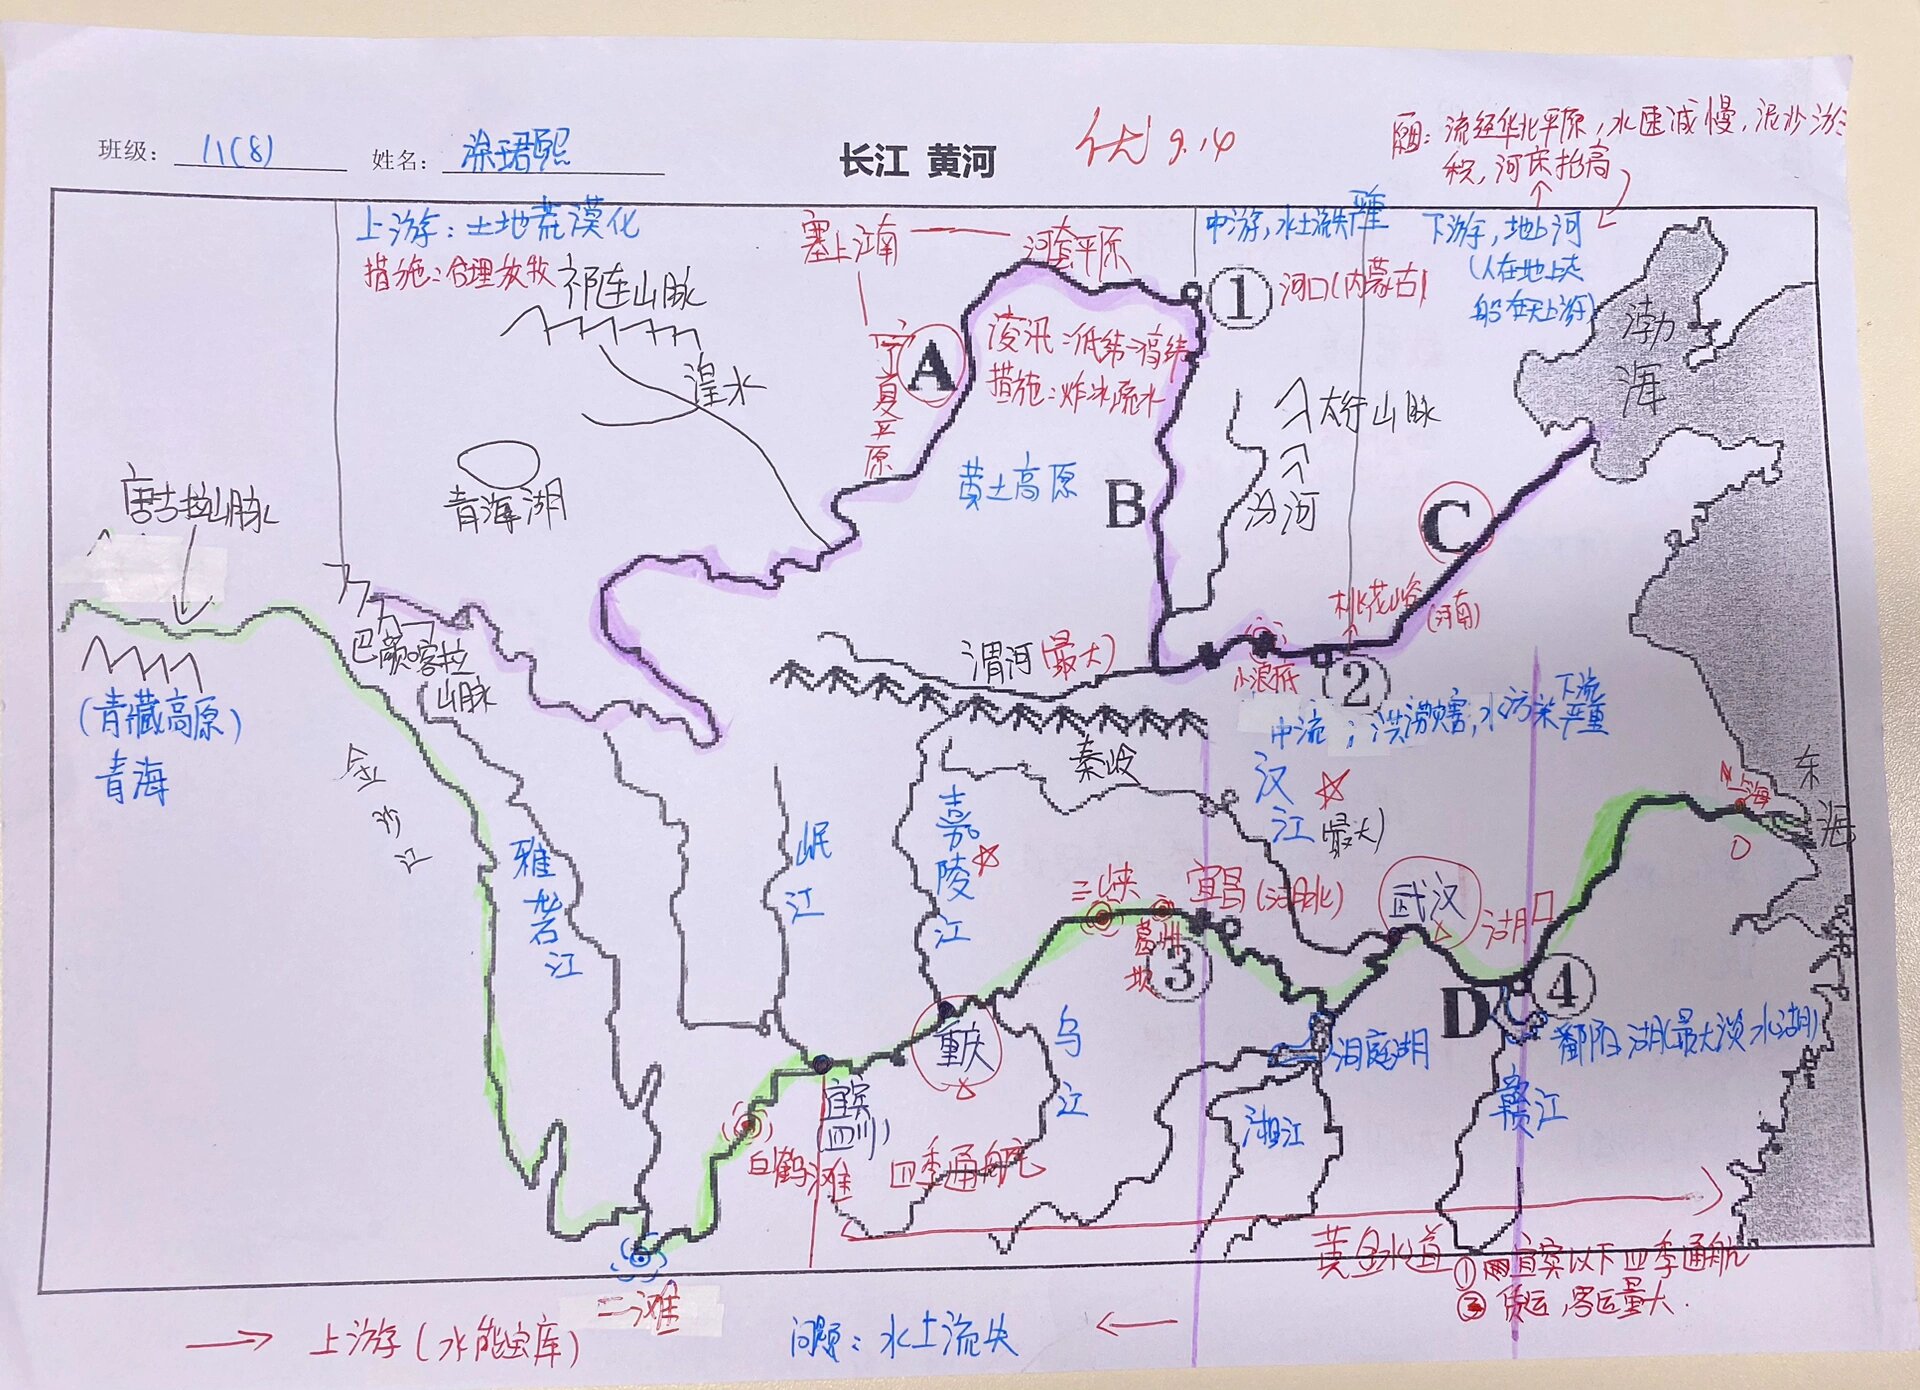 班级: 八(8) 姓名: 涂珺熙
长江 黄河
优 9.14
原因: 流经华北平原, 水速减慢, 泥沙淤
积, 河床抬高
上游: 土地荒漠化
措施: 合理放牧
塞上江南
河套平原
中游, 水土流失严重
下游, 地上河
(人在地上走
船在天上游)
祁连山脉
①
河口(内蒙古)
宁夏平原
A
凌汛: 低纬→高纬
措施: 炸冰疏水
渤海
湟水
太行山脉
唐古拉山脉
青海湖
黄土高原
B
汾河
C
桃花峪
(河南)
巴颜喀拉
山脉
渭河(最大)
小浪底
②
(青藏高原)
青海
中流: 洪涝灾害, 水污染严重
下流
秦岭
金沙江
汉江
(最大)
上海
东海
雅砻江
岷江
嘉陵江
三峡
葛洲坝
宜昌(湖北)
③
武汉
湖口
D
④
鄱阳湖(最大淡水湖)
重庆
乌江
洞庭湖
宜宾
(四川)
湘江
赣江
白鹤滩
四季通航
黄金水道
①宜宾以下四季通航
②货运, 客运量大.
二滩
上游(水能宝库)
问题: 水土流失